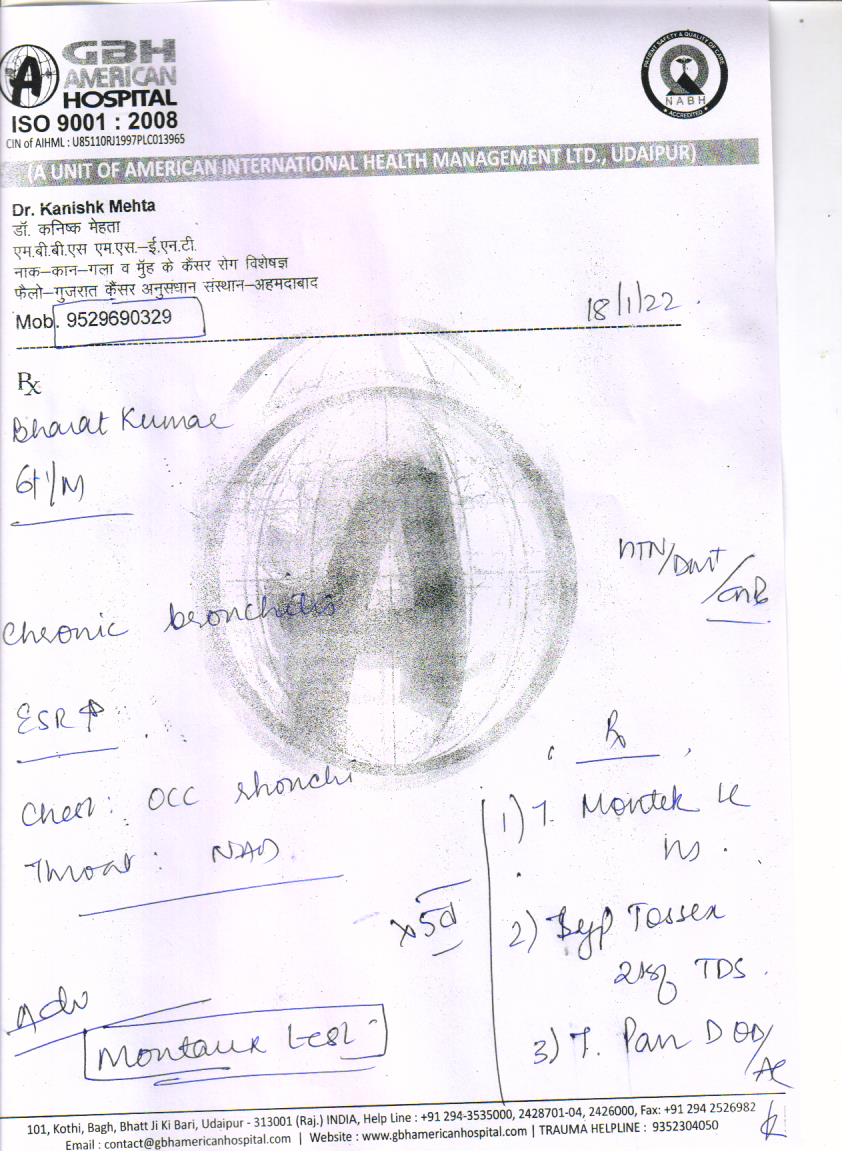 GBH
AMERICAN
HOSPITAL
ISO 9001 : 2008
CIN of AIHML : U85110RJ1997PLC013965
PATIENT SAFETY & QUALITY OF CARE
NABH
ACCREDITED
(A UNIT OF AMERICAN INTERNATIONAL HEALTH MANAGEMENT LTD., UDAIPUR)
Dr. Kanishk Mehta
डॉ. कनिष्क मेहता
एम.बी.बी.एस एम.एस.–ई.एन.टी.
नाक–कान–गला व मुँह के कैंसर रोग विशेषज्ञ
फैलो–गुजरात कैंसर अनुसंधान संस्थान–अहमदाबाद
Mob. 9529690329
18/1/22
Rx
Bharat Kumar
/M
HTN/DM
Chronic bronchitis
ESR ↑
Chest: occ rhonchi
Throat: NAD
Rx
1) T. Montek LC
HS
x5d
2) Syp Tossex
2tsf TDS
3) T. Pan D OD/
AC
Adv
Montaux test
101, Kothi, Bagh, Bhatt Ji Ki Bari, Udaipur - 313001 (Raj.) INDIA, Help Line : +91 294-3535000, 2428701-04, 2426000, Fax: +91 294 2526982
Email : contact@gbhamericanhospital.com | Website : www.gbhamericanhospital.com | TRAUMA HELPLINE : 9352304050